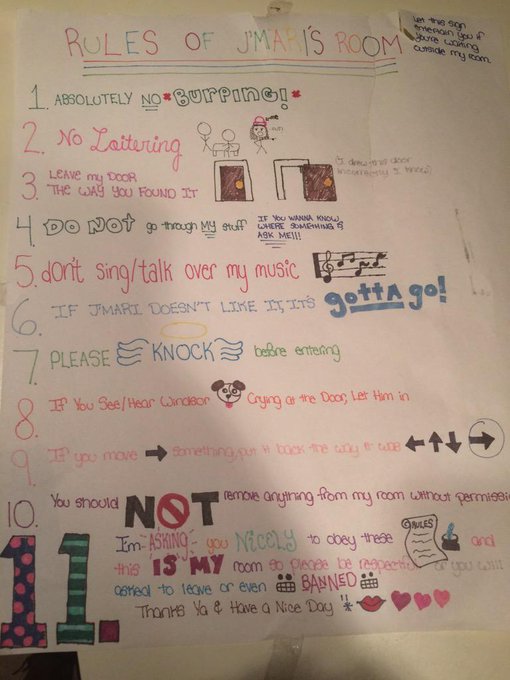 RULES OF J'MARI'S ROOM
Let this sign
entertain you if
you're waiting
outside my room.
1. ABSOLUTELY NO *BURPING!*
2. No Loitering
3. LEAVE my DOOR
THE WAY YOU FOUND IT
(I drew this door
incorrectly I know)
4. DO NOT go through MY stuff
IF YOU WANNA KNOW
WHERE SOMETHING IS
ASK ME!!!
5. don't sing/talk over my music
6. IF J'MARI DOESN'T LIKE IT, IT'S gotta go!
7. PLEASE KNOCK before entering
8. If You See/Hear Windsor Crying at the Door, Let Him in
9. If you move something, put it back the way it was
10. You should NOT remove anything from my room without permissi
11. I'm ASKING you NICELY to obey these RULES and
this IS MY room so please be respectful or you will
asked to leave or even BANNED
Thanks Ya & Have a Nice Day